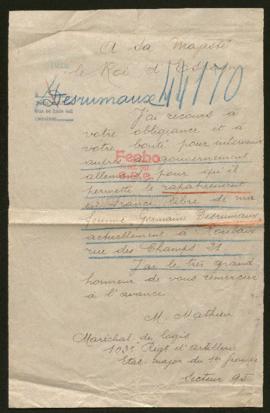 A Sa Majesté
le Roi d'Espagne
Desrumaux 44170
J'ai recours à
votre obligeance et à
votre bonté pour intervenir
auprès du gouvernement
allemand pour qu'il
permette le rapatriement
en France libre de ma
femme Germaine Desrumaux
actuellement à Roubaix
rue des Champs 31
J'ai le très grand
honneur de vous remercier
à l'avance.
M. Mathieu
Maréchal des logis
103e Regt d'artillerie
Etat-major du 1er groupe
Secteur 95